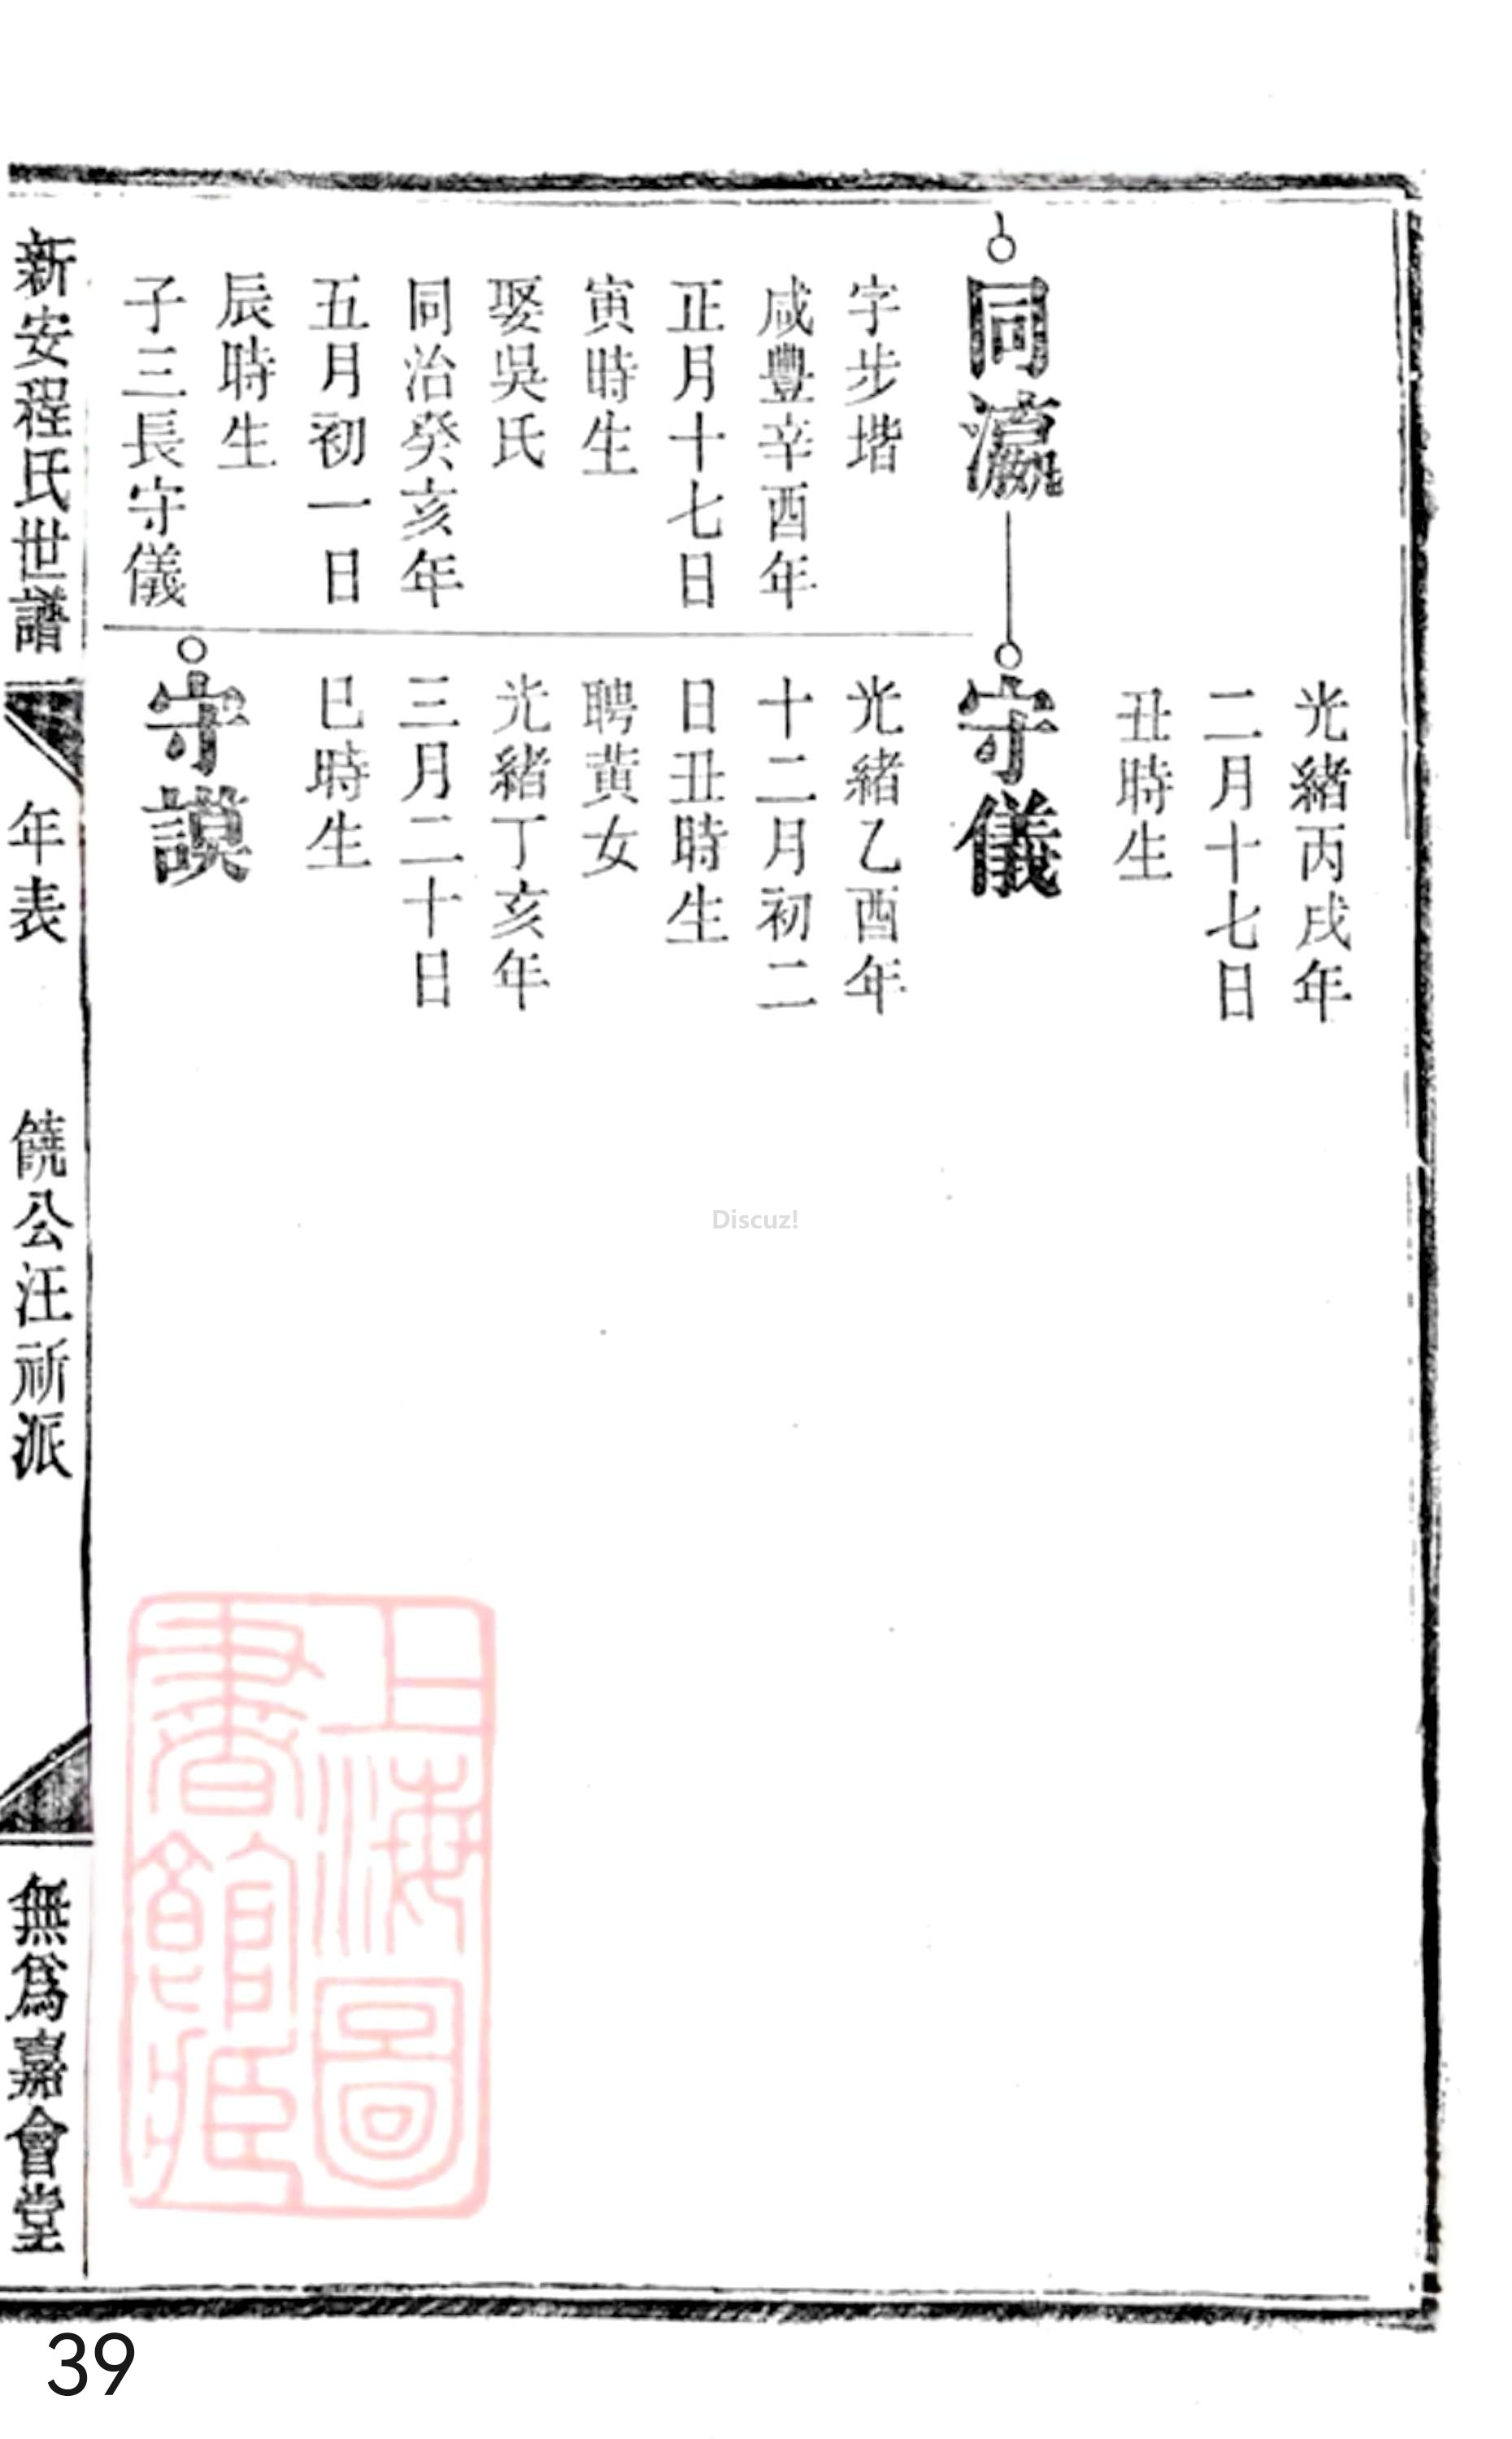 光緒丙戌年
二月十七日
丑時生
同瀛
字步堦
咸豐辛酉年
正月十七日
寅時生
娶吳氏
同治癸亥年
五月初一日
辰時生
子三長守儀
守儀
光緒乙酉年
十二月初二
日丑時生
聘黃女
光緒丁亥年
三月二十日
巳時生
守謨
新安程氏世譜
年表
饒公汪祈派
無爲嘉會堂
上海圖
書館藏
Discuz!
39